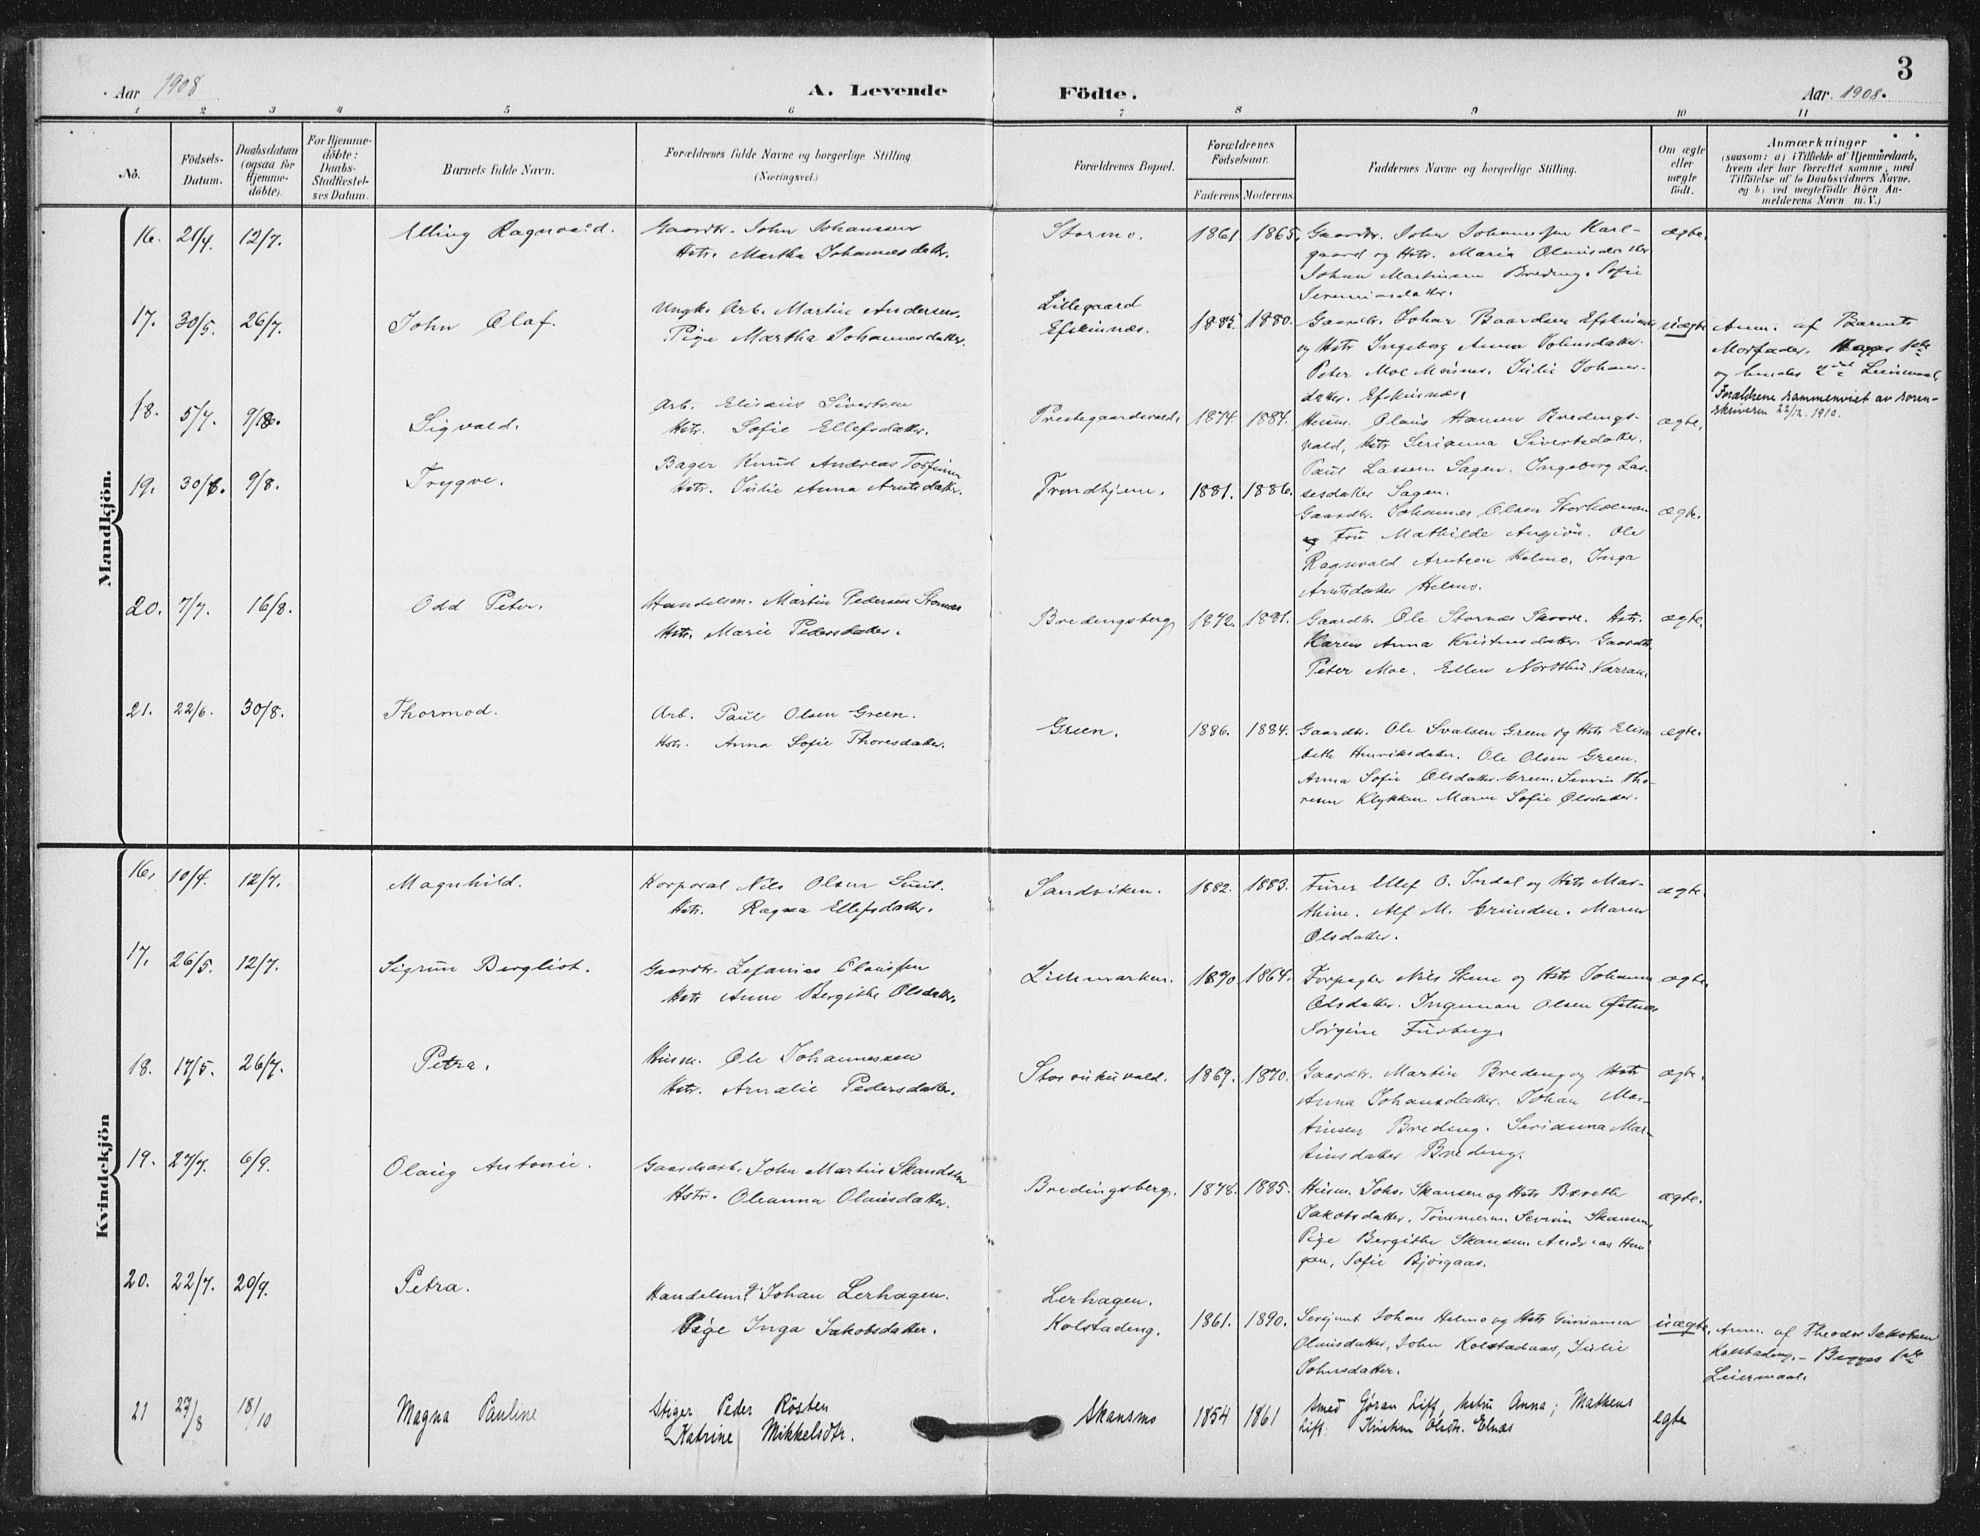 Aar 1908
A. Levende Födte.
Aar 1908.
3
1 2 3 4 5 6 7 8 9 10 11
No.
Födsels-
Datum.
Daabsdatum
(ogsaa for
Hjemme-
döbte).
For Hjemme-
döbte:
Daabs-
Stadfæstel-
ses Datum.
Barnets fulde Navn.
Forældrenes fulde Navne og borgerlige Stilling
(Næringsvei.)
Forældrenes Bopæl.
Forældrenes
Födselsaar.
Faderens Moderens
Faddernes Navne og borgerlige Stilling.
Om ægte
eller
uægte
födt.
Anmærkninger
(saasom: a) i Tilfælde af Hjemmedaab,
hvem der har forrettet samme, med
Tilföielse af to Daabsvidners Navne,
og b) ved uægtefödte Börn An-
melderens Navn m. V.)
Mandkjön.
16. 21/4. 12/7. Elling Ragnvald.
Gaardbr. John Johansen
Hstr. Martha Johannesdatter.
Stormo. 1861 1865.
Gaardbr. John Johannessen Karl-
gaard og Hstr. Maria
Johan Martinsen Breding. Sofie
Jeremiasdatter.
ægte.
17. 30/5. 26/7. John Olaf.
Ungk. Arb. Martin Andersen.
Pige Martha Johannesdatter.
Lillegaard
Efskinnæs. 1885. 1880.
Gaardbr. Johan Baardsen
og Hstr Ingeborg Anna Johnsdatter.
Peter Moe Julie Johans-
datter. Efskinnæs.
uægte
Anm. af Barnets
Morfader. 1ste
og hendes 2det Leiermaal.
Forældrene sammenviet av soren-
skriveren 22/12. 1910.
18. 5/7. 9/8. Sigvald.
Arb. Elisæus Sivertsen
Hstr. Sofie Ellefsdatter.
Prestegaardsvald. 1874. 1884.
Husm. Olaus Hansen Bredings-
vald, Hstr Serianna Sivertsdatter.
Paul Lassen Sagen. Ingeborg Las-
sesdatter Sagen.
ægte.
19. 30/6. 9/8. Trygve.
Bager Knud Andreas Torfinnsen
Hstr. Julie Anna Arntsdatter.
Trondhjem. 1881. 1886.
Gaardbr. Johannes Olsen Storholmen
og Fru Mathilde Ole
Ragnvald Arntsen Helmo. Inga
Arntsdatter Helmo.
ægte.
20. 7/7. 16/8. Odd Peter.
Handelsm. Martin Pedersen Stornæs
Hstr. Marie Pedersdatter.
Bredingsberg, 1872. 1881.
Gaardbr. Ole Stornæs Skovre. Hstr.
Karen Anna Kristensdatter. Gaardbr.
Peter Moe. Ellen
ægte.
21. 22/6. 30/8. Thormod.
Arb. Paul Olsen Green.
Hstr. Anna Sofie Thoresdatter.
Green. 1886. 1884.
Gaardbr. Ole Green og Hstr Elisa
beth Henriksdatter. Ole Olsen Green.
Anna Sofie Olsdatter Green. Tho-
resen Klykken Maren Sofie Olsdatter.
ægte.
Kvindekjön
16. 10/4. 12/7. Magnhild.
Korporal Nils Olsen
Hstr. Ragna Ellefsdatter.
Sandviken. 1882. 1883.
Furer Ellef O. Indal og Hstr Mar-
thine. Alf M. Grunden. Maren
Olsdatter.
ægte.
17. 26/5. 12/7. Sigrun Bergliot.
Gaardbr. Zefanias Claussen
Hstr Anne Bergithe Olsdatter.
Lillemarken. 1870. 1864.
Forpagter Nils og Hstr Johanna
Olsdatter. Ingeman Olsen
Jørgine
ægte.
18. 17/5. 26/7. Petra.
Husm. Ole Johannessen
Hstr. Amalie Pedersdatter.
1869. 1870.
Gaardbr. Martin Breding og Hstr
Anna Johansdatter. Johan Mar-
tinsen Breding. Serianna Mar-
tinsdatter Breding.
ægte.
19. 27/7. 6/9. Olaug Antonie.
Gaardsarb. John Martin Skandsen
Hstr. Oleanna Olausdatter.
Bredingsberg. 1878. 1885.
Husm. Johs. Skansen og Hstr Berethe
Jakobsdatter. Tømmerm. Severin Skansen
Pige Bergithe Skansen. Andreas
Sofie Bjørgaas.
ægte.
20. 22/7. 20/9. Petra.
Handelsm. Johan Lerhagen.
Pige Inga Jakobsdatter.
Lerhagen.
Kolstadeng. 1861. 1890.
Serjent Johan Helmo og Hstr
Olausdatter, John Kolstadaas, Julie
Johnsdatter.
uægte,
Anm. af Theodor Jakobsen
Kolstadeng. – Begges 1ste
Leiermaal.
21 27/8 18/10 Magna Pauline
Stiger Peder Rösten
Katrine Mikkelsdtr.
Skansmo 1854 1861
Smed Gjøran Liff, hustru Anna; Matheus
Liff. Kristen Olsdtr. Elnæs
egte